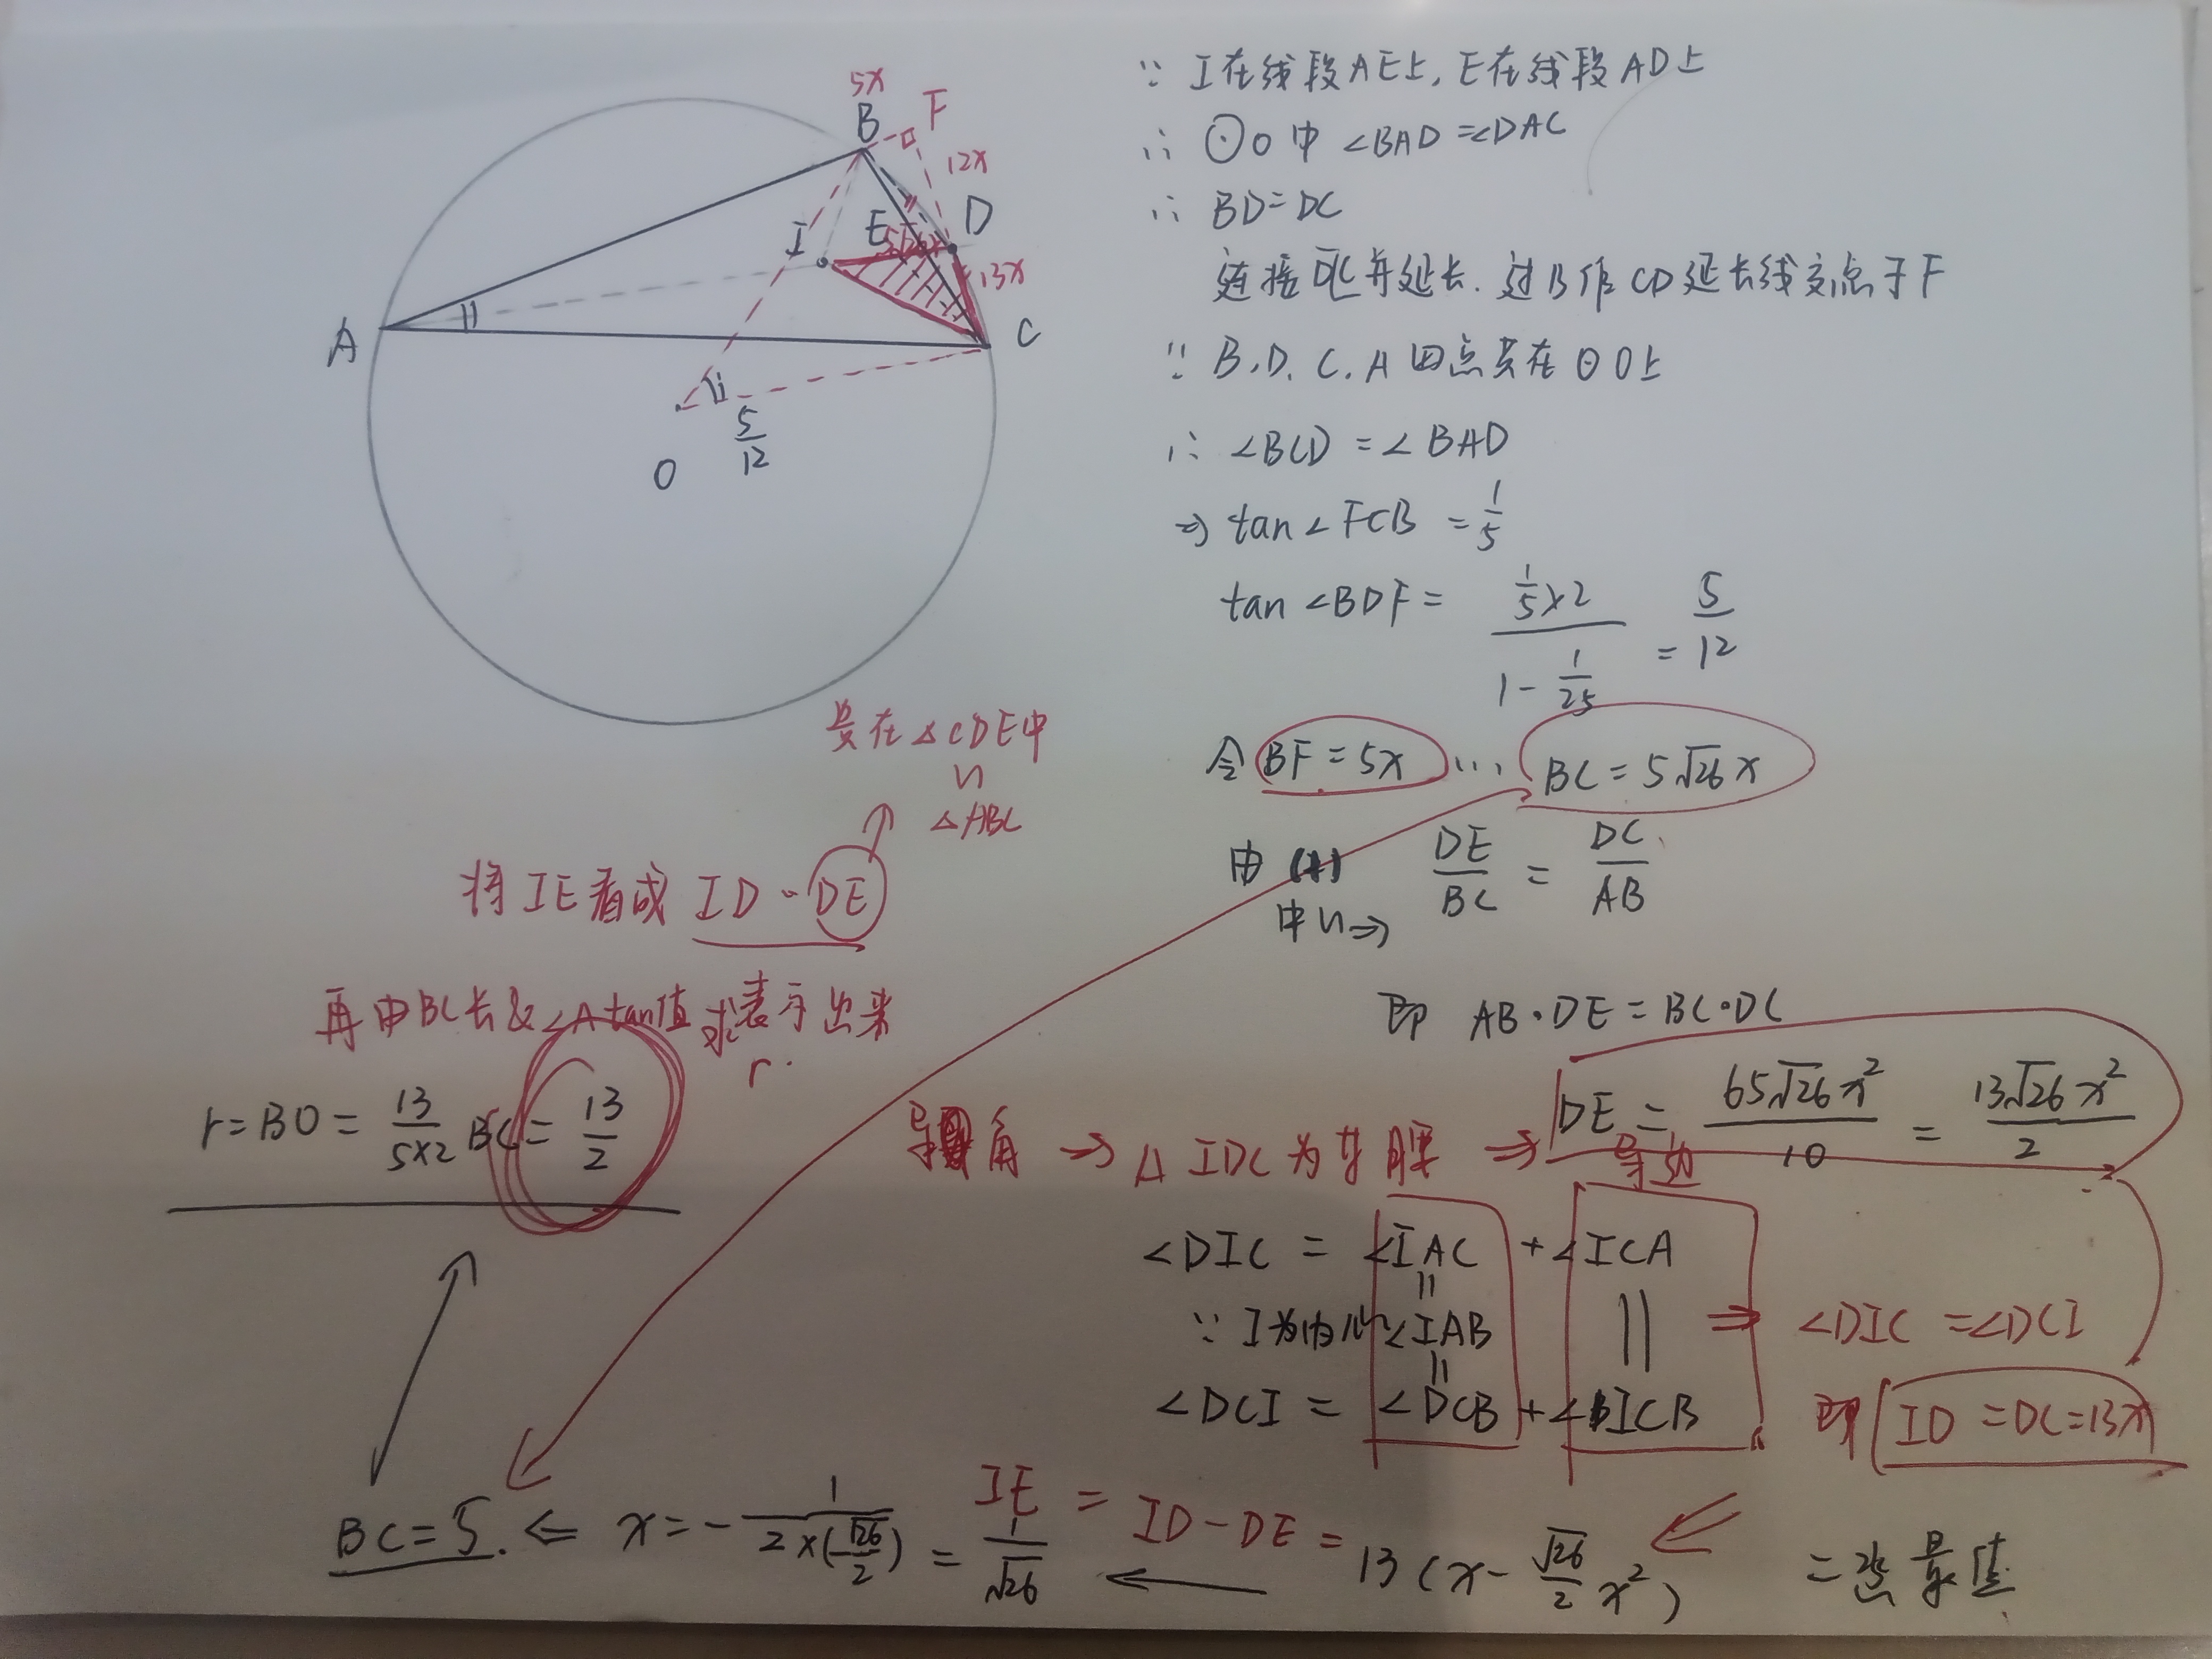 5x
B
F
12x
I
E
D
13x
A
C
5/12
O
∵ I在线段AE上, E在线段AD上
∴ ⊙O中 ∠BAD=∠DAC
∴ BD=DC
连接 并延长. 过B作CD延长线交点于F
∵ B.D.C.A四点共在⊙O上
∴ ∠BCD=∠BAD
⇒ tan∠FCB = 1/5
tan∠BDF = (1/5×2)/(1-1/25) = 5/12
令 BF=5x ... BC=5√26x
由 (1) 中∽⇒ DE/BC = DC/AB
即 AB·DE=BC·DC
DE = 65√26x²/10 = 13√26x²/2
在△CDE中
∽
△ABC
将IE看成 ID-DE
再由BC长&∠A tan值求表示出来
r.
r=BO= 13/(5×2) BC = 13/2
导角 ⇒ △IDC为等腰 ⇒ 等边
∠DIC = ∠IAC + ∠ICA
∵ I为内心 ∠IAB
⇒ ∠DIC=∠DCI
∠DCI = ∠DCB + ∠ICB
即 ID=DC=13x
IE = ID-DE = 13(x-√26/2 x²) = 最值
x=- 1/(2×(√26/2)) = 1/√26
⇐
BC=5.